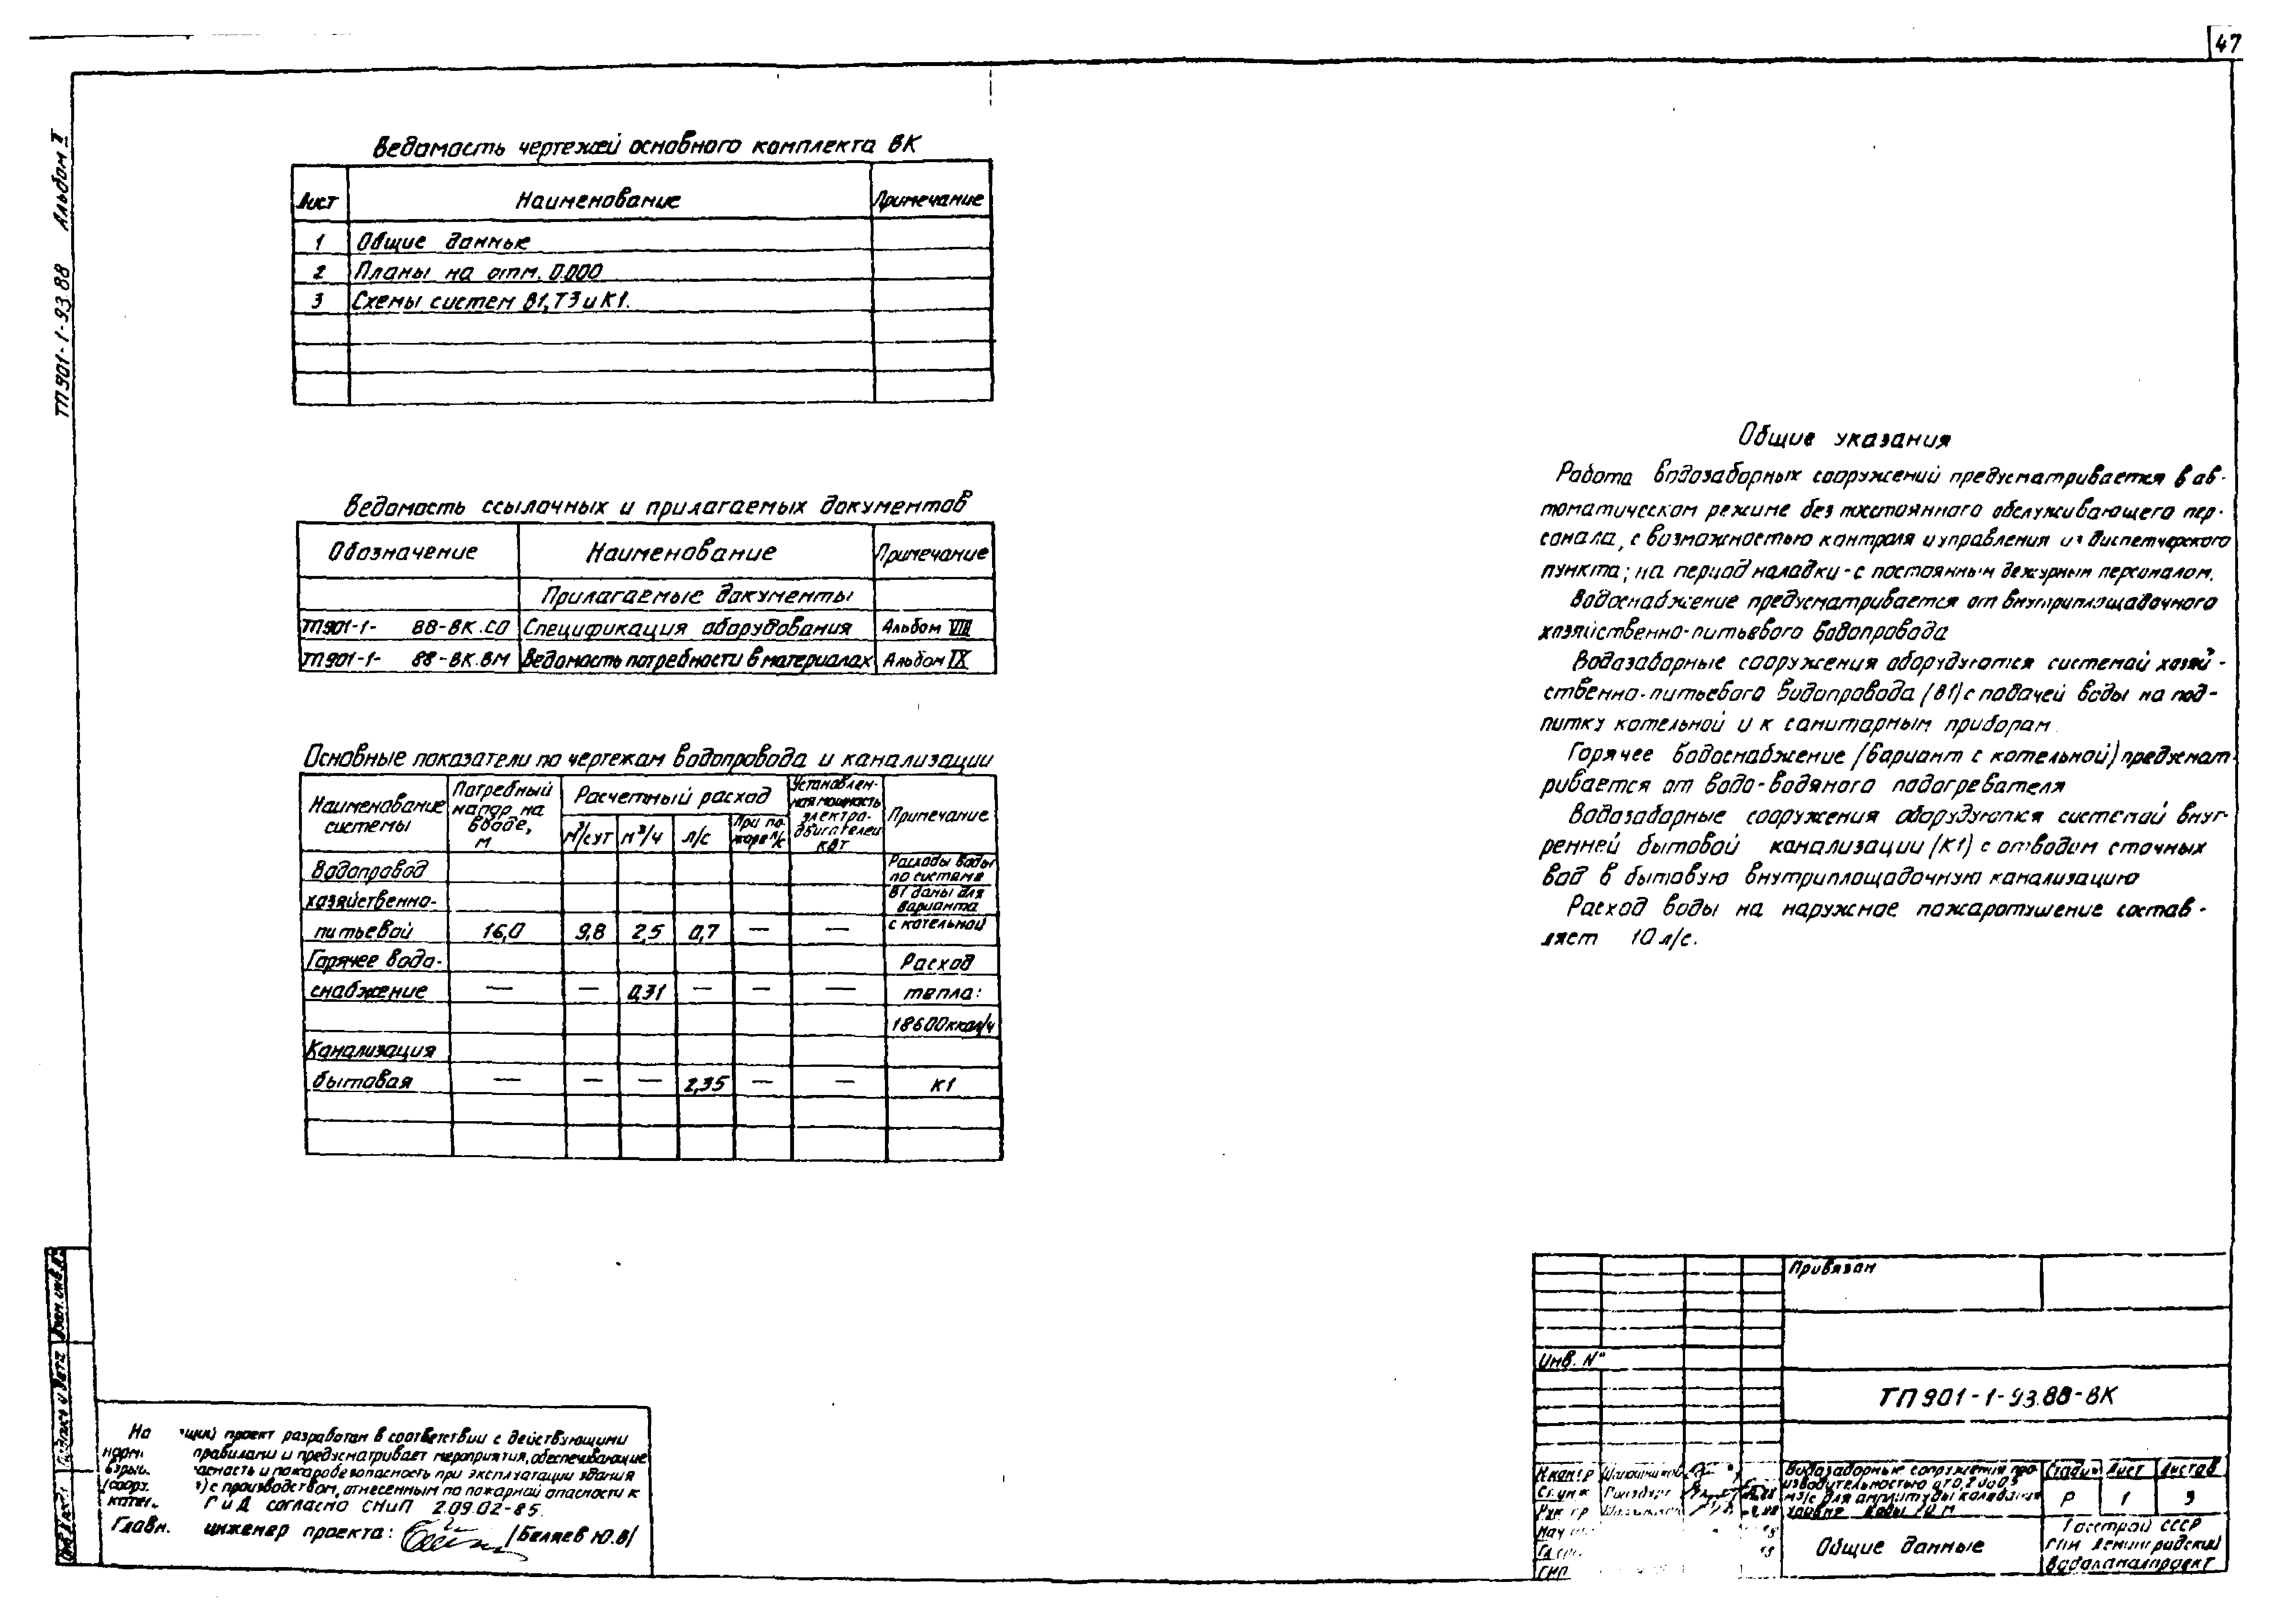 47
ТП 901-1-93.88 Альбом
Ведомость чертежей основного комплекта ВК
Лист Наименование Примечание
1 Общие данные
2 Планы на отм. 0.000
3 Схемы систем В1, Т3 и К1.
Ведомость ссылочных и прилагаемых документов
Обозначение Наименование Примечание
Прилагаемые документы
ТП901-1- 88-ВК.СО Спецификация оборудования Альбом VIII
ТП901-1- 88-ВК.ВМ Ведомость потребности в материалах Альбом IX
Основные показатели по чертежам водопровода и канализации
Наименование системы Потребный напор на вводе, м Расчетный расход Установленная мощность электродвигателей кВт Примечание
м³/сут м³/ч л/с При пожаре л/с
Водопровод Расходы воды по системе
хозяйственно- В1 даны для варианта
питьевой 16,0 9,8 2,5 0,7 — — с котельной
Горячее водо- Расход
снабжение — — 0,31 — — — тепла:
18600 ккал/ч
Канализация
бытовая — — — 2,35 — — К1
Общие указания
Работа водозаборных сооружений предусматривается в ав-
томатическом режиме без постоянного обслуживающего пер-
сонала, с возможностью контроля и управления из диспетчерского
пункта; на период наладки - с постоянным дежурным персоналом.
Водоснабжение предусматривается от внутриплощадочного
хозяйственно-питьевого водопровода
Водозаборные сооружения оборудуются системой хозяй-
ственно-питьевого водопровода (В1) с подачей воды на под-
питку котельной и к санитарным приборам
Горячее водоснабжение (вариант с котельной) предусмат
ривается от водо-водяного подогревателя
Водозаборные сооружения оборудуются системой внут-
ренней бытовой канализации (К1) с отводом сточных
вод в бытовую внутриплощадочную канализацию
Расход воды на наружное пожаротушение состав-
ляет 10 л/с.
На щий проект разработан в соответствии с действующими
норм правилами и предусматривает мероприятия, обеспечивающие
взрыв асность и пожаробезопасность при эксплуатации здания
(сооруж ) с производством, отнесенным по пожарной опасности к
катег. Г и Д согласно СНиП 2.09.02-85.
Главн. инженер проекта: /Беляев Ю.В/
Взам. инв. №
Подпись и дата
Привязан
Инв. №
ТП 901-1-93.88-ВК
Н.контр
Рук гр
ГИП
Водозаборные сооружения про-
изводительностью от 0,2 до 0,5
м3/с для амплитуды колебания
уровня воды 10 м
Стадия Лист Листов
Р 1 3
Общие данные
Госстрой СССР
ГПИ Ленинградский
Водоканалпроект